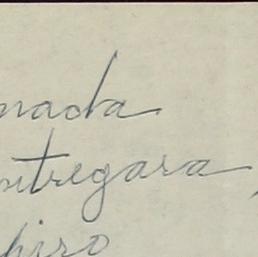 nada
ntregara,
hiro